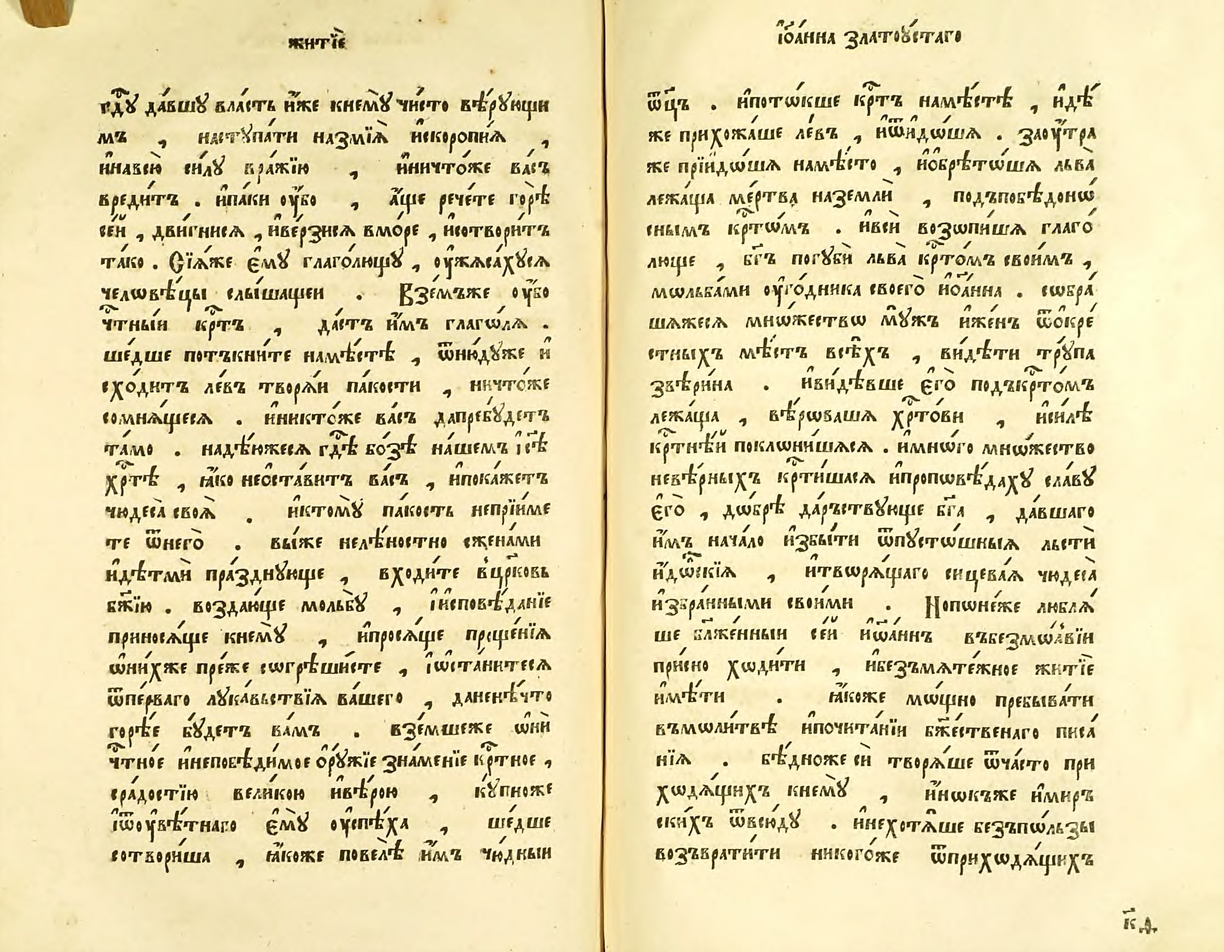 житїе
гдꙋ да́вшꙋ вла́сть и҆́же кнемꙋ̀ чи́сто вѣ́рꙋющи
мъ , наст꙼ꙋпа́ти назмїѧ̀ и҆скоропїѧ ,
и҆навсю̀ си́лꙋ вра́жїю , и҆ничто́же ва́съ
вреди́тъ . и҆па́ки ᲂу҆́бо , а҆́ще рече́те горѣ̀
се́й , дви́гнисѧ , и҆ве́рзисѧ вмо́ре , и҆сотвори́тъ
та́ко . Сїѧ́же є҆мꙋ̀ глаго́лющꙋ , ᲂу҆жаса́хꙋсѧ
человѣ́цы слы́шащеи . Взе́мъже ᲂу҆́бо
чтⷭ҇ны́и крⷭ҇тъ , да́стъ и҆̀мъ глаго́лѧ .
ше́дше потъкни́те намѣ́стѣ , ѿню́дꙋже и҆
схо́дитъ ле́въ творѧ́и па́кости , ничто́же
сомнѧ́щесѧ . и҆никто́же ва́съ дапребꙋ́детъ
та́мо . надѣ́южесѧ гдⷭ҇ѣ бо́зѣ на́шемъ і҆сѣ
хрⷭ҇тѣ̀ , ꙗ҆́ко неѡста́витъ ва́съ , и҆пока́жетъ
чюдеса̀ своѧ̀ . и҆ктомꙋ̀ па́кость непрїи́ме
те ѿнего̀ . вы́же нелѣ́ностно сжена́ми
и҆дѣтмѝ пра́зднꙋюще , входи́те вцр҃ковь
бж҃їю . воздаю́ще мольбꙋ̀ , і҆и҆сповѣ́данїе
приносѧ́ще кнемꙋ̀ , и҆просѧ́ще проще́нїѧ
ѡ҆ни́хже пре́же согрѣши́сте , і҆ѡ҆ста́нитесѧ
ѿпе́рваго лꙋка́вьствїѧ ва́шего , данене́что
горѣ́е бꙋ́детъ ва́мъ . взе́мшеже ѡ҆нѝ
чтⷭ҇ное и҆непобѣди́мое ѻ҆рꙋ́жїе зна́менїе крⷭ҇тное ,
сра́достїю вели́кою и҆вѣ́рою , кꙋ́пноже
і҆ѿᲂу҆вѣ́тнаго є҆мꙋ̀ ᲂу҆спѣ́ха , ше́дше
сотвори́ша , ꙗ҆́коже повелѣ̀ и҆̀мъ чю́дныи
і҆ѡа́нна златоꙋ́стаго
ѿц҃ъ . и҆пото́кше крⷭ҇тъ намѣ́стѣ , и҆дѣ́
же прихожа́ше ле́въ , и҆ѿидо́шѧ . заᲂу҆́тра
же прїидо́шѧ намѣ́сто , и҆ѡ҆брѣто́шѧ льва̀
лежа́ща ме́ртва наземлѝ , подъпобѣдоно́
снымъ крⷭ҇то́мъ . и҆всѝ возопи́шѧ глаго́
люще , бг҃ъ погꙋбѝ льва̀ крⷭ҇то́мъ свои́мъ ,
мольба́ми ᲂу҆го́дника своего̀ и҆ѡа́нна . собра́
шѧжесѧ мно́жество мꙋ́жъ и҆же́нъ ѿѡкре́
стныхъ мѣ́стъ всѣ́хъ , ви́дѣти трꙋ́па
звѣ́рина . и҆ви́дѣвше є҆го̀ подъкрⷭ҇то́мъ
лежа́ща , вѣ́роваша хрⷭ҇то́ви , и҆си́лѣ
крⷭ҇тнѣ́й поклони́шѧсѧ . и҆мно́го мно́жество
невѣ́рныхъ крⷭ҇ти́шасѧ и҆проповѣ́дахꙋ сла́вꙋ
є҆го̀ , до́брѣ да́рьствꙋюще бг҃а , да́вшаго
и҆̀мъ нача́ло и҆збы́ти ѿпꙋсто́шныѧ льсти
и҆́дѡльскїѧ , и҆творѧ́щаго сицева́ѧ чюдеса̀
и҆збра́нными свои́ми . Нопоне́же люблѧ́
ше бл҃же́нныи се́й и҆ѡа́ннъ въбезмо́лвїи
при́сно ходи́ти , и҆безъмѧте́жное житїѐ
и҆мѣ́ти . ꙗ҆́коже мо́щно пребыва́ти
въмоли́твѣ и҆почита́нїи бж҃е́ственаго писа́
нїѧ . бѣ́дноже си̑ творѧ́ше ѿча́сто при
ходѧ́щихъ кнемꙋ̀ , и҆и҆́нокъже и҆ми́р
скихъ ѿвсю́дꙋ . и҆нехотѧ́ше безъпо́льзы
возъврати́ти никого́же ѿприходѧ́щихъ
к҃д